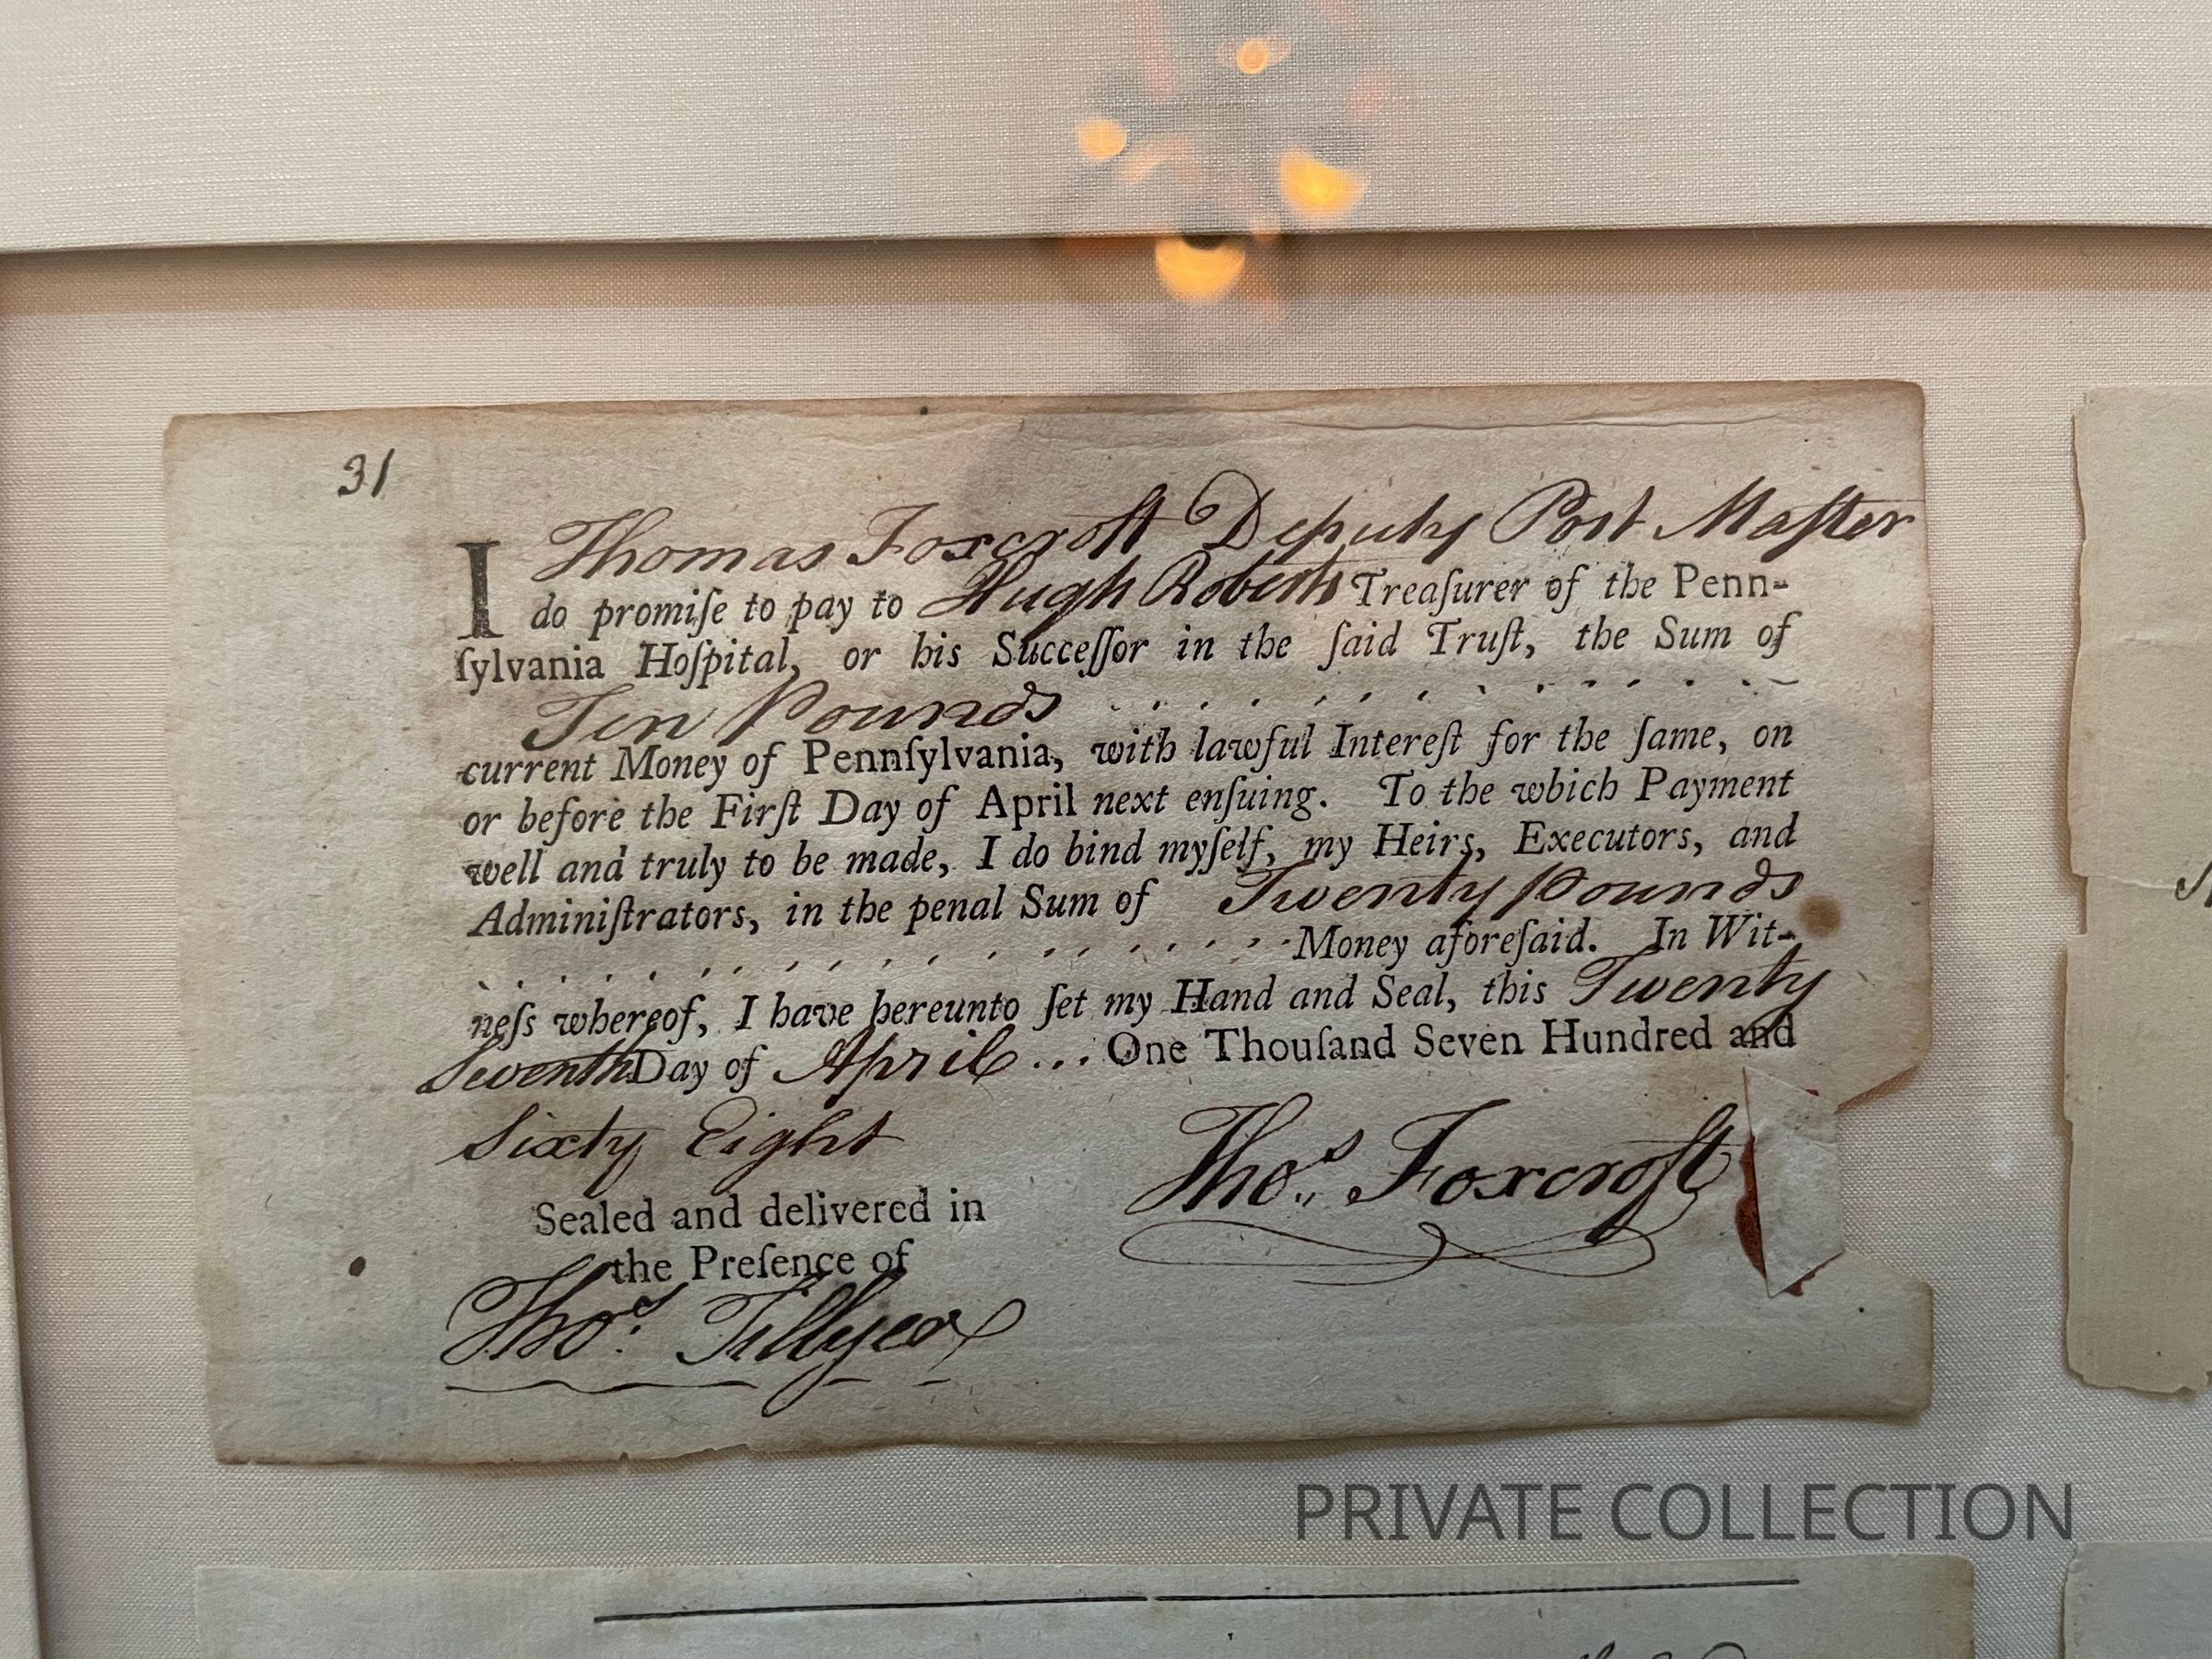 31
I Thomas Foxcroft Deputy Post Maſter
do promiſe to pay to Hugh Roberts Treaſurer of the Penn-
ſylvania Hoſpital, or his Succeſſor in the ſaid Truſt, the Sum of
Ten Pounds
current Money of Pennſylvania, with lawful Intereſt for the ſame, on
or before the Firſt Day of April next enſuing. To the which Payment
well and truly to be made, I do bind myſelf, my Heirs, Executors, and
Adminiſtrators, in the penal Sum of Twenty Pounds
Money aforeſaid. In Wit-
neſs whereof, I have hereunto ſet my Hand and Seal, this Twenty
Seventh Day of April ... One Thouſand Seven Hundred and
Sixty Eight
Thos. Foxcroft
Sealed and delivered in
the Preſence of
Thos. Tillyer
PRIVATE COLLECTION